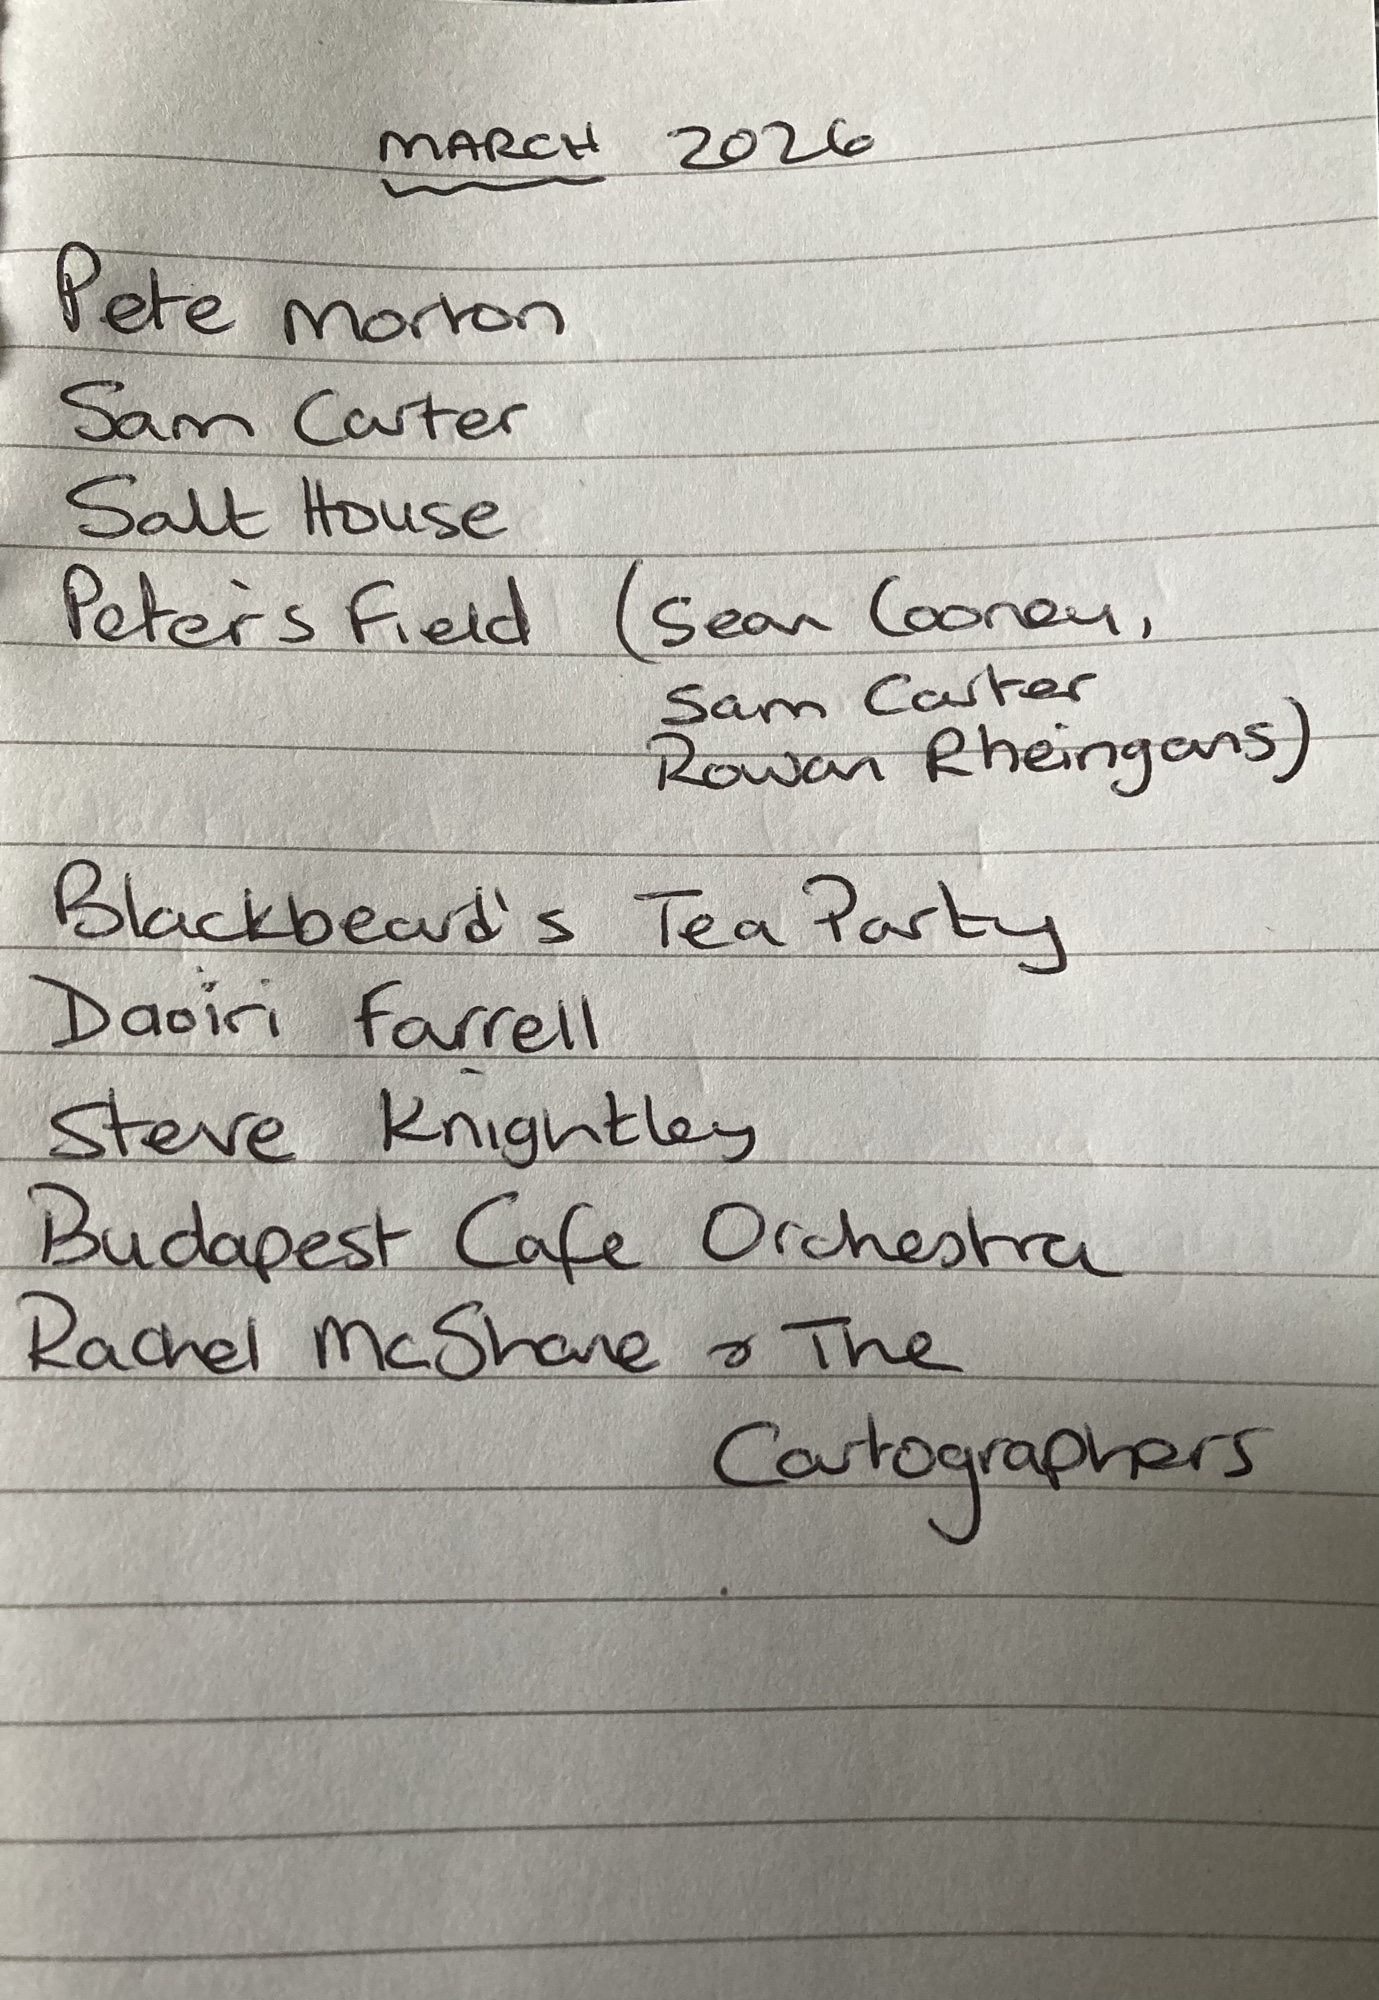 MARCH 2026
Pete Morton
Sam Carter
Salt House
Peter's Field (Sean Cooney,
Sam Carter
Rowan Rheingans)
Blackbeard's Tea Party
Daoiri Farrell
Steve Knightley
Budapest Cafe Orchestra
Rachel McShane & The
Cartographers